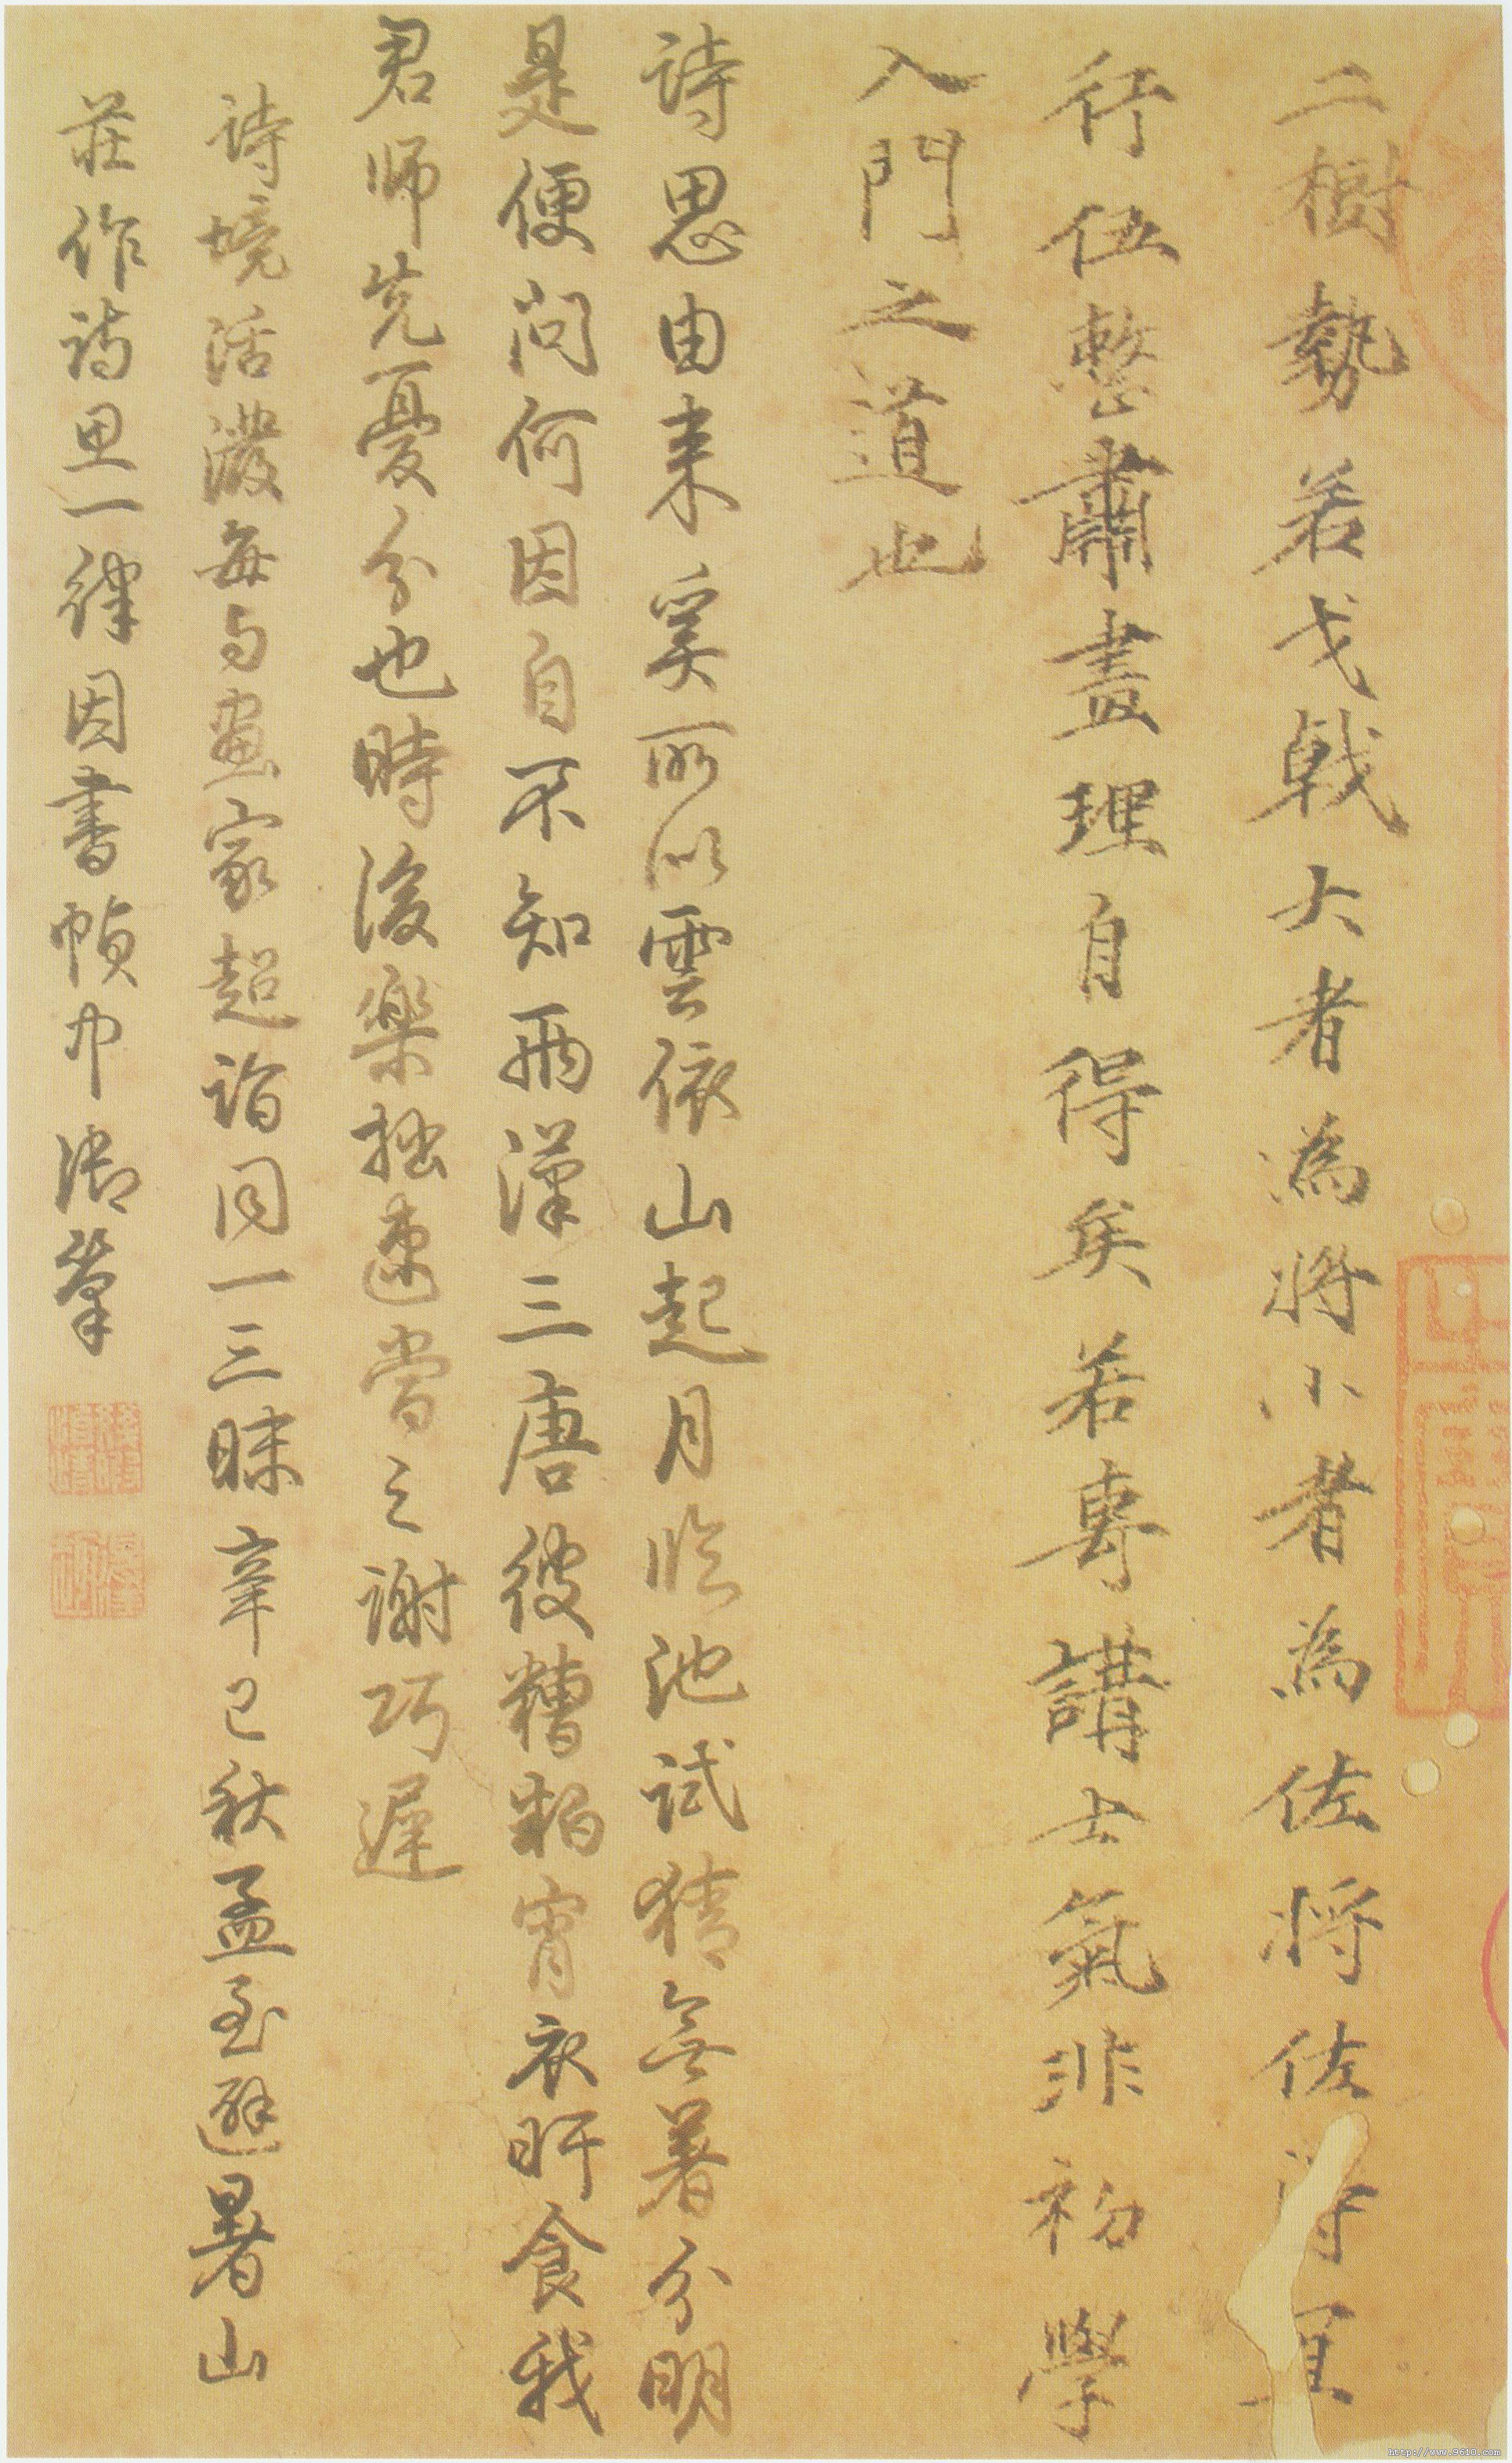 二樹勢若戈戟大者為將小者為佐將佐得宜
行伍整肅畫理自得矣若專講士氣非初學
入門之道也
詩思由来奚所以雲依山起月臨池試猜無著分明
是便問何因自不知兩漢三唐彼糟粕宵衣旰食我
君師先憂分也時後樂拙速當之謝巧遲
詩境活潑每与畫家超詣同一三昧辛巳秋孟至避暑山
莊作詩思一律因書幀巾御筆
http://www.9610.com